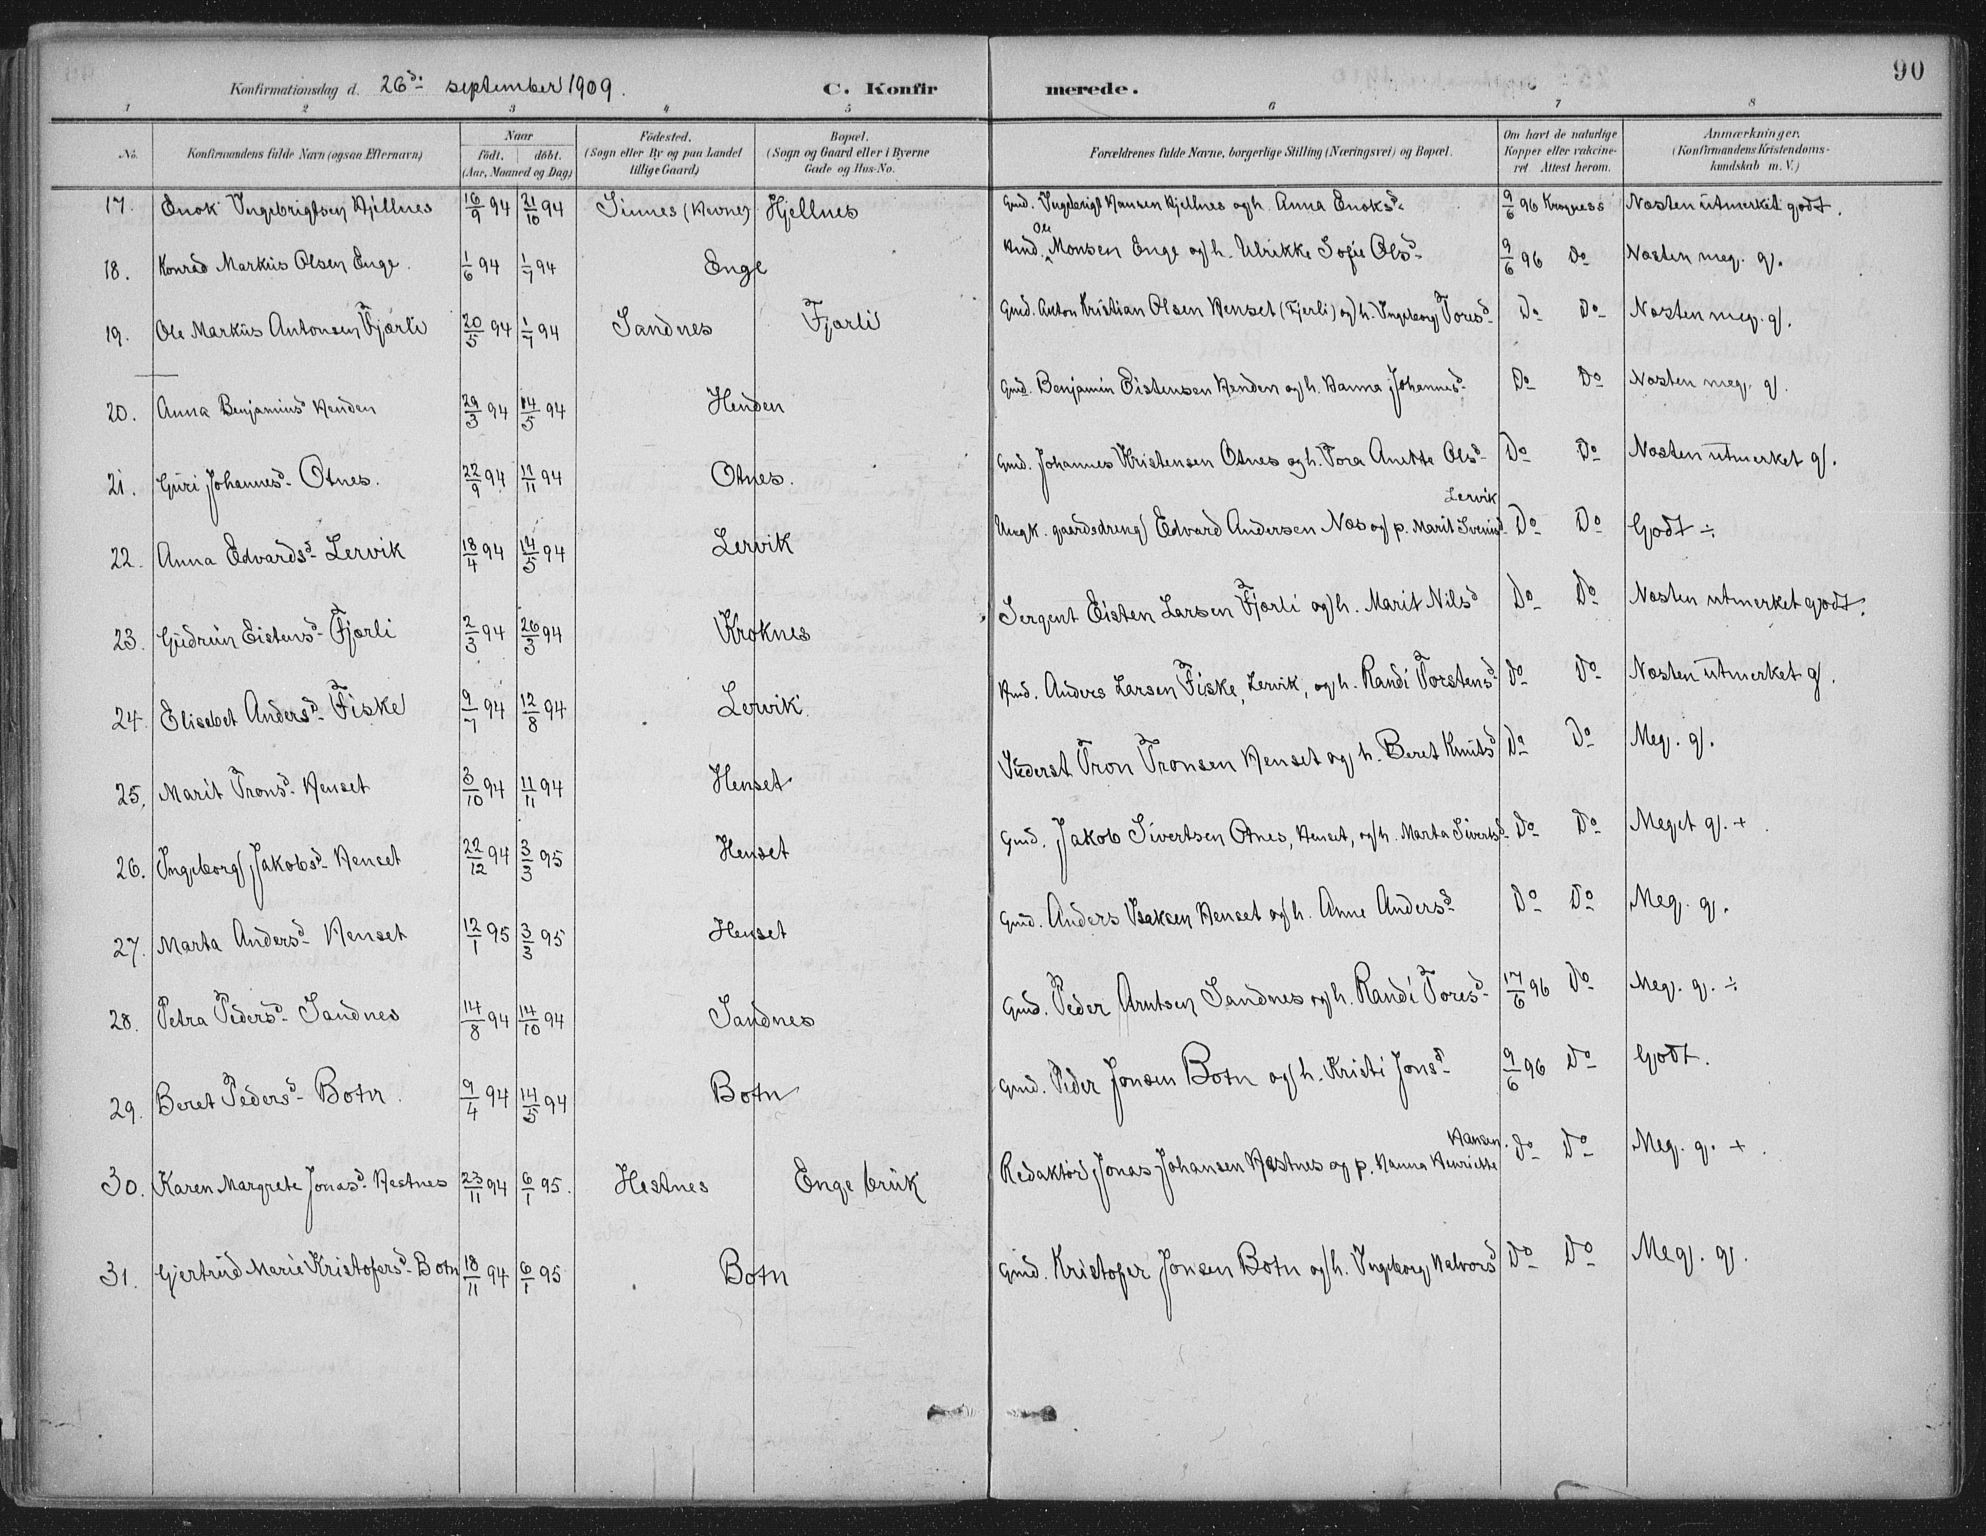 90
Konfirmationsdag d. 26d: september 1909. C. Konfir merede.
1 2 3 4 5 6 7 8
No. Konfirmandens fulde Navn (ogsaa Efternavn) Naar födt. döbt. (Aar, Maaned og Dag) Födested. (Sogn eller By og paa Landet tillige Gaard) Bopæl. (Sogn og Gaard eller i Byerne Gade og Hus-No. Forældrenes fulde Navne, borgerlige Stilling (Næringsvei) og Bopæl. Om havt de naturlige Kopper eller vakcineret Attest herom. Anmærkninger. (Konfirmandens Kristendomskundskab m. V.)
17. Enok Ingebrigtsen Hjellnes 16/9 94 21/10 94 Sinnes (Hevne) Hjellnes Gmd. Ingebrigt Hansen Hjellnes og h. Anna Enoksd. 9/6 96 Krogness Næsten utmerket godt.
18. Konrad Markus Olsen Enge. 1/6 94 1/7 94 Enge Hmd. Ole Monsen Enge og h. Ulrikke Sofie Olsd. 9/6 96 Do Næsten meg. g.
19. Ole Markus Antonsen Fjærli 20/5 94 1/7 94 Sandnes Fjærli Gmd. Anton Kristian Olsen Henset (Fjerli) og h. Ingeborg Toresd. Do Do Næsten meg. g.
20. Anna Benjaminsd Henden 29/3 94 14/5 94 Henden Gmd. Benjamin Eistensen Henden og h. Hanna Johannesd. Do Do Næsten meg. g.
21. Guri Johannesd. Otnes. 22/9 94 11/11 94 Otnes. Gmd. Johannes Kristensen Otnes og h. Tora Anetta Olsd. Do Do Næsten utmerket g.
22. Anna Edvardsd. Lervik 18/4 94 14/5 94 Lervik Ungk. gaardsdreng Edvard Andersen Næs og p. Marit Iversd Lervik Do Do Godt ÷.
23. Gudrun Eistensd. Fjærli 2/3 94 26/3 94 Kroknes Sergent Eisten Larsen Fjærli og h. Marit Nilsd Do Do Næsten utmerket godt.
24. Elisabet Andersd. Fiske 9/7 94 12/8 94 Lervik. Hmd. Anders Larsen Fiske, Lervik, og h. Randi Torstensd. Do Do Næsten utmerket g.
25. Marit Tronsd. Henset 3/10 94 11/11 94 Henset Inderst Tron Tronsen Henset og h. Beret Knutsd Do Do Meg. g.
26. Ingeborg Jakobsd. Henset 22/12 94 3/3 95 Henset Gmd. Jakob Sivertsen Otnes, Henset, og h. Marta Sivertsd. Do Do Meget g. +
27. Marta Andersd. Henset 12/1 95 3/3 95 Henset Gmd. Anders Isaksen Henset og h. Anne Andersd. Do Do Meg. g.
28. Petra Pedersd. Sandnes 14/8 94 14/10 94 Sandnes Gmd. Peder Arntsen Sandnes og h. Randi Toresd. 17/6 96 Do Meg. g. ÷
29. Beret Pedersd. Botn. 9/4 94 14/5 94 Botn Gmd. Peder Jonsen Botn og h. Kristi Jonsd. 9/6 96 Do Godt.
30. Karen Margrete Jonasd. Hestnes 23/11 94 6/1 95. Hestnes Enge bruk Redaktør Jonas Johansen Hestnes og p. Hanna Henriette Hansen. Do Do Meg. g. +
31. Gjertrud Merie Kristofersd. Botn 18/11 94 6/1 95 Botn Gmd. Kristofer Jonsen Botn og h. Ingeborg Halvorsd Do Do Meg. g.